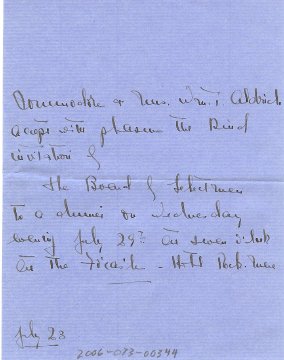 Commodore & Mrs. Wm. T. Aldrich
accept with pleasure the kind
invitation of
the Board of Selectmen
to a dinner on Wednesday
evening July 29th at seven o'clock
at the - Hotel Rock-mere
July 23
2006-073-00344